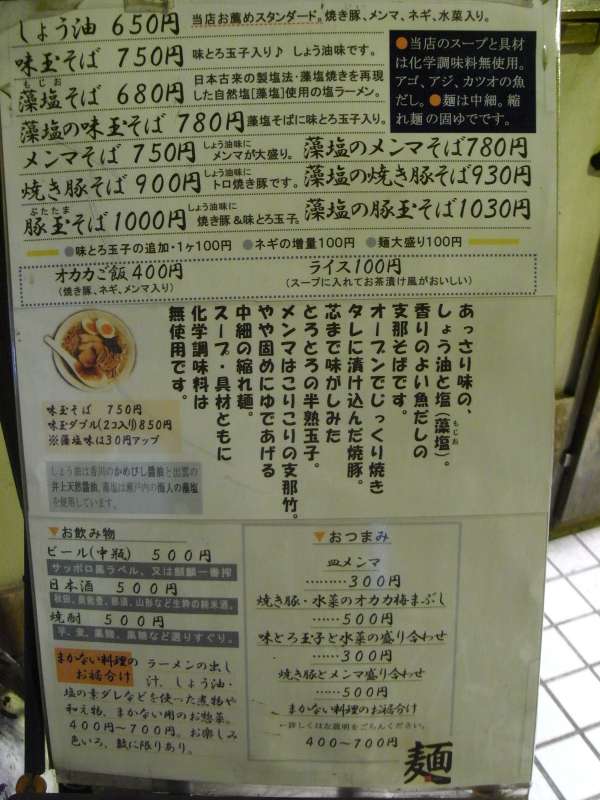 しょう油 650円 当店お薦めスタンダード。焼き豚、メンマ、ネギ、水菜入り。
味玉そば 750円 味とろ玉子入り♪ しょう油味です。
もじお
藻塩そば 680円 日本古来の製塩法・藻塩焼きを再現
した自然塩[藻塩]使用の塩ラーメン。
藻塩の味玉そば 780円 藻塩そばに味とろ玉子入り。
●当店のスープと具材
は化学調味料無使用。
アゴ、アジ、カツオの魚
だし。●麺は中細。縮
れ麺の固ゆでです。
メンマそば 750円 しょう油味に
メンマが大盛り。
藻塩のメンマそば780円
焼き豚そば 900円 しょう油味に
トロ焼き豚です。
藻塩の焼き豚そば930円
ぶたたま
豚玉そば 1000円 しょう油味に
焼き豚&味とろ玉子。
藻塩の豚玉そば 1030円
●味とろ玉子の追加・1ヶ100円 ●ネギの増量100円 ●麺大盛り100円
オカカご飯 400円
(焼き豚、ネギ、メンマ入り)
ライス 100円
(スープに入れてお茶漬け風がおいしい)
あっさり味の、
しょう油と塩(藻塩)。
もじお
香りのよい魚だしの
支那そばです。
オーブンでじっくり焼き
タレに漬け込んだ焼豚。
芯まで味がしみた
とろとろの半熟玉子。
メンマはこりこりの支那竹。
やや固めにゆであげる
中細の縮れ麺。
スープ・具材ともに
化学調味料は
無使用です。
味玉そば 750円
味玉ダブル(2コ入り)850円
※藻塩味は30円アップ
しょう油は香川のかめびし醤油と出雲の
井上天然醤油、藻塩は瀬戸内の海人の藻塩
を使用しています。
▼お飲み物
ビール(中瓶) 500円
サッポロ黒ラベル、又は麒麟一番搾
日本酒 500円
山形など生粋の純米酒。
焼酎 500円
芋、麦、黒糖など選りすぐり。
まかない料理の
お福分け
ラーメンの出し
汁、しょう油・
塩の素ダレなどを使った煮物や
和え物、まかない用のお惣菜。
400円〜700円。お楽しみ
色いろ、数に限りあり。
▼おつまみ
皿メンマ
………300円
焼き豚・水菜のオカカ梅まぶし
………500円
味とろ玉子と水菜の盛り合わせ
………300円
焼き豚とメンマ盛り合わせ
………500円
まかない料理のお福分け
←詳しくは左説明をごらんください。
400〜700円
麺